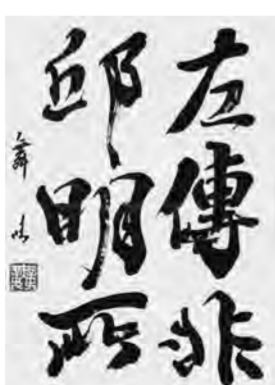 左傳非
邱明所